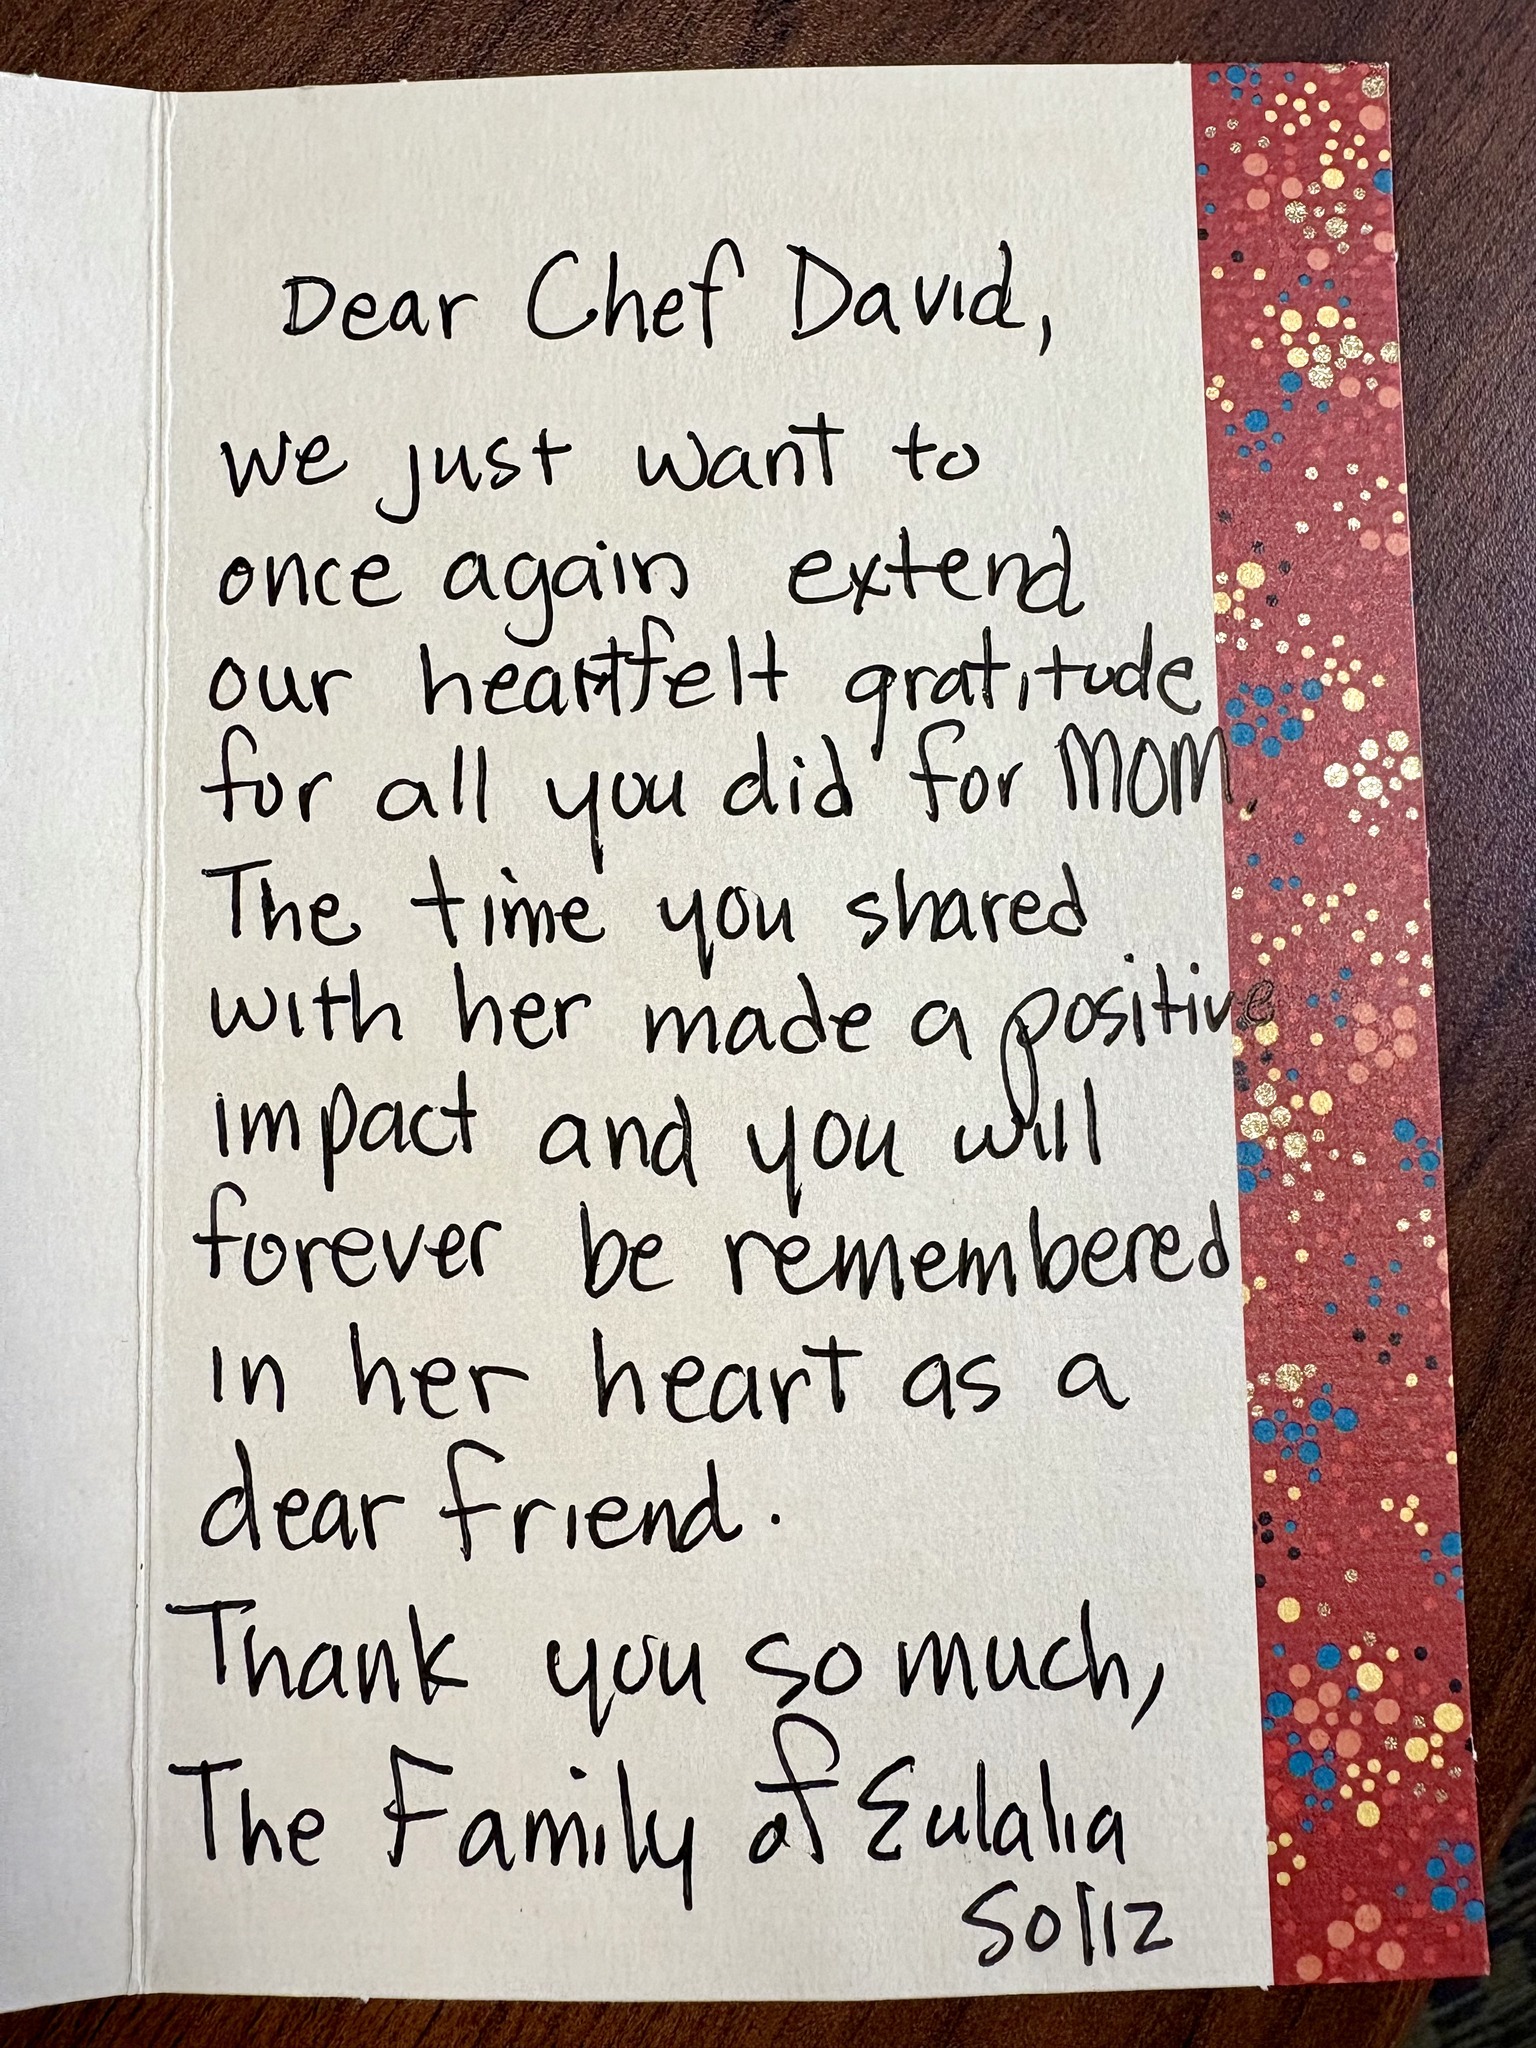 Dear Chef David,
We just want to
once again extend
our heartfelt gratitude
for all you did for MOM.
The time you shared
with her made a positive
impact and you will
forever be remembered
in her heart as a
dear friend.
Thank you so much,
The Family of Eulalia
Soliz